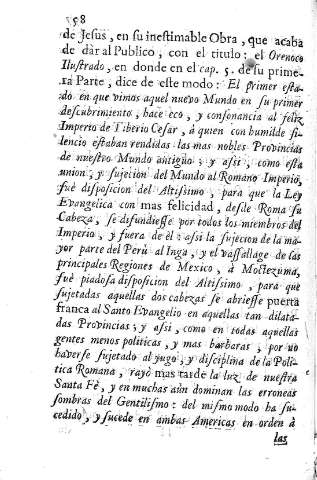 58
de Jesus, en su inestimable Obra, que acaba
de dàr al Publico, con el titulo: el Orenoco
Ilustrado, en donde en el cap. 5. de su prime-
ra Parte, dice de este modo: El primer esta-
do en que vimos aquel nuevo Mundo en su primer
descubrimiento, hace eco, y consonancia al feliz
Imperio de Tiberio Cesar, à quien con humilde si-
lencio estaban rendidas las mas nobles Provincias
de nuestro Mundo antiguo; y assi, como esta
union, y sujecion del Mundo al Romano Imperio,
fuè disposicion del Altissimo, para que la Ley
Evangelica con mas felicidad, desde Roma su
Cabeza, se difundiesse por todos los miembros del
Imperio, y fuera de èl: assi la sujecion de la ma-
yor parte del Perù al Inga, y el vassallage de las
principales Regiones de Mexico, à Motezuma,
fuè piadosa disposicion del Altissimo, para que
sujetadas aquellas dos cabezas se abriesse puerta
franca al Santo Evangelio en aquellas tan dilata-
das Provincias; y assi, como en todas aquellas
gentes menos politicas, y mas barbaras, por no
haverse sujetado al yugo, y disciplina de la Poli-
tica Romana, rayò mas tarde la luz de nuestra
Santa Fè, y en muchas aùn dominan las erroneas
sombras del Gentilismo: del mismo modo ha su-
cedido, y sucede en ambas Americas en orden à
las